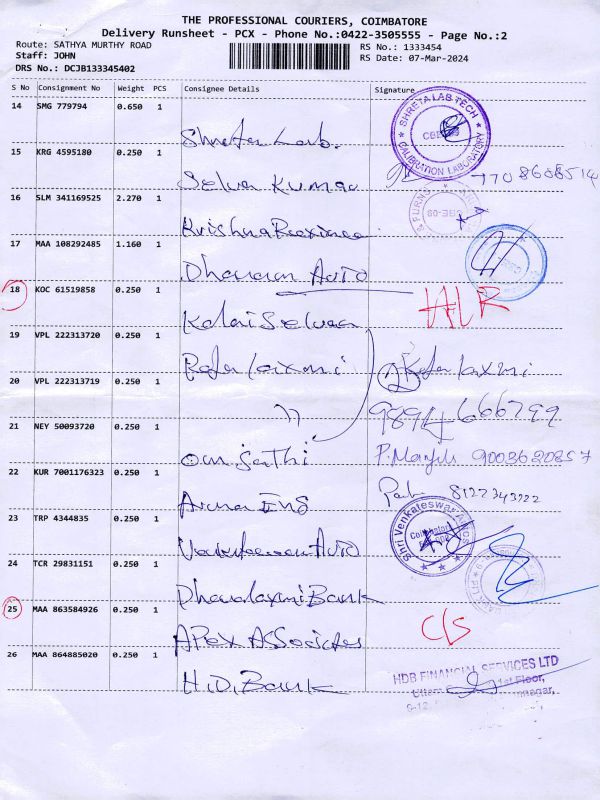 THE PROFESSIONAL COURIERS, COIMBATORE
Delivery Runsheet - PCX - Phone No.:0422-3505555 - Page No.:2
Route: SATHYA MURTHY ROAD
Staff: JOHN
DRS No.: DCJB133345402
RS No.: 1333454
RS Date: 07-Mar-2024
S No Consignment No Weight PCS Consignee Details Signature
14 SMG 779794 0.650 1
Shreta Lab.
SHRETA LAB TECH
CALIBRATION LABORATORY
15 KRG 4595180 0.250 1
Selva Kumar 7708608514
16 SLM 341169525 2.270 1
Krishna
17 MAA 108292485 1.160 1
Auto
18 KOC 61519858 0.250 1
Kalai Selvan
19 VPL 222313720 0.250 1
laxmi laxmi
20 VPL 222313719 0.250 1
" 9894666799
21 NEY 50093720 0.250 1
Om Sathi P. 9003620857
22 KUR 7001176323 0.250 1
Aruna Eng 8122343222
23 TRP 4344835 0.250 1
Auto
Shri Venkateswar
Coimbatore
24 TCR 29831151 0.250 1
Dhanalaxmi Bank
25 MAA 863584926 0.250 1
Apex Associates
C/S
26 MAA 864885020 0.250 1
H.D. Bank
HDB FINANCIAL SERVICES LTD
1st Floor,